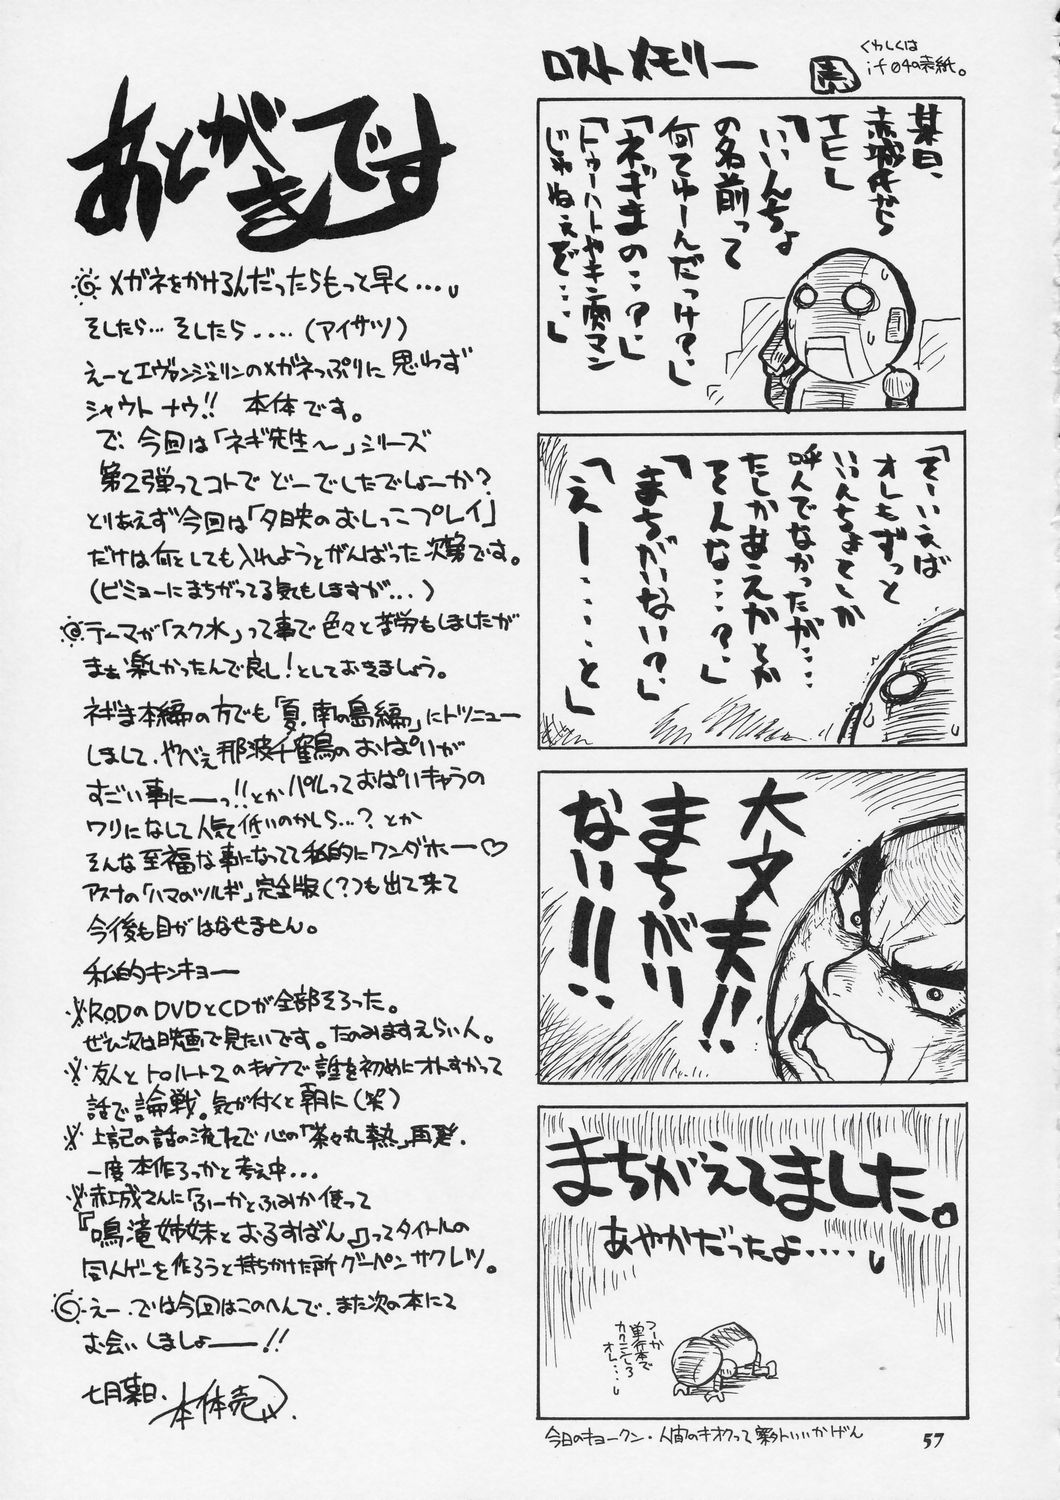 あとがきです
メガネをかけるんだったらもっと早く…。
そしたら…そしたら....(アイサツ)
えーとエヴァンジェリンのメガネっぷりに思わず
シャウトナウ!! 本体です。
で、今回は「ネギ先生〜」シリーズ
第2弾ってコトでどーでしたでしょーか?
とりあえず今回は「夕映のおしっこプレイ」
だけは何としても入れようとがんばった次第です。
(ビミョーにまちがってる気もしますが...)
テーマが「スク水」って事で色々と苦労もしましたが
まぁ楽しかったんで良し!としておきましょう。
ネギま本編の方でも「夏、南の島編」にトツニュー
しまして、やべえ那波千鶴のおぱいが
すごい事にーっ!!とかパルっておぱいキャラの
ワリになして人気低いのかしら…?とか
そんな至福な事になってて私的にワンダホー♡
アスナの「ハマノツルギ」完全版(?)も出て来て
今後も目がはなせません。
私的キンキョー
※R.O.DのDVDとCDが全部そろった。
ぜひ次は映画で見たいです。たのみますえらい人。
※友人とトゥハート2のキャラで誰を初めにオトすかって
話で論戦。気が付くと朝に(笑)
※上記の話の流れで心の「茶々丸熱」再発、
一度本作ろっかと考え中...
※赤城さんに「ふーかとふみか使って
『鳴滝姉妹とおるすばん』ってタイトルの
同人ゲーを作ろうと持ちかけた所グーペンサクレツ。
えー、では今回はこのへんで、また次の本にて
お会いしましょーー!!
七月某日、本体売
ロストメモリー
くわしくは
if04の表紙。
某日、
赤城氏から
TELし
「いいんちょ
の名前って
何てゆーんだっけ?」
「ネギまの..?」
「トゥーハートやキン肉マン
じゃねえぞ…」
「そーいえば
オレもずっと
いいんちょとしか
呼んでなかったが…
たしかあえかとか
そんな…?」
「まちがいない?」
「えー……と」
大丈夫!!
まちがい
ない!!
まちがえてました。
あやかだったよ……
つーか
単行本で
カクニンしろ
オレ…
今日のキョークン・人間のキオクって案外いいかげん
57